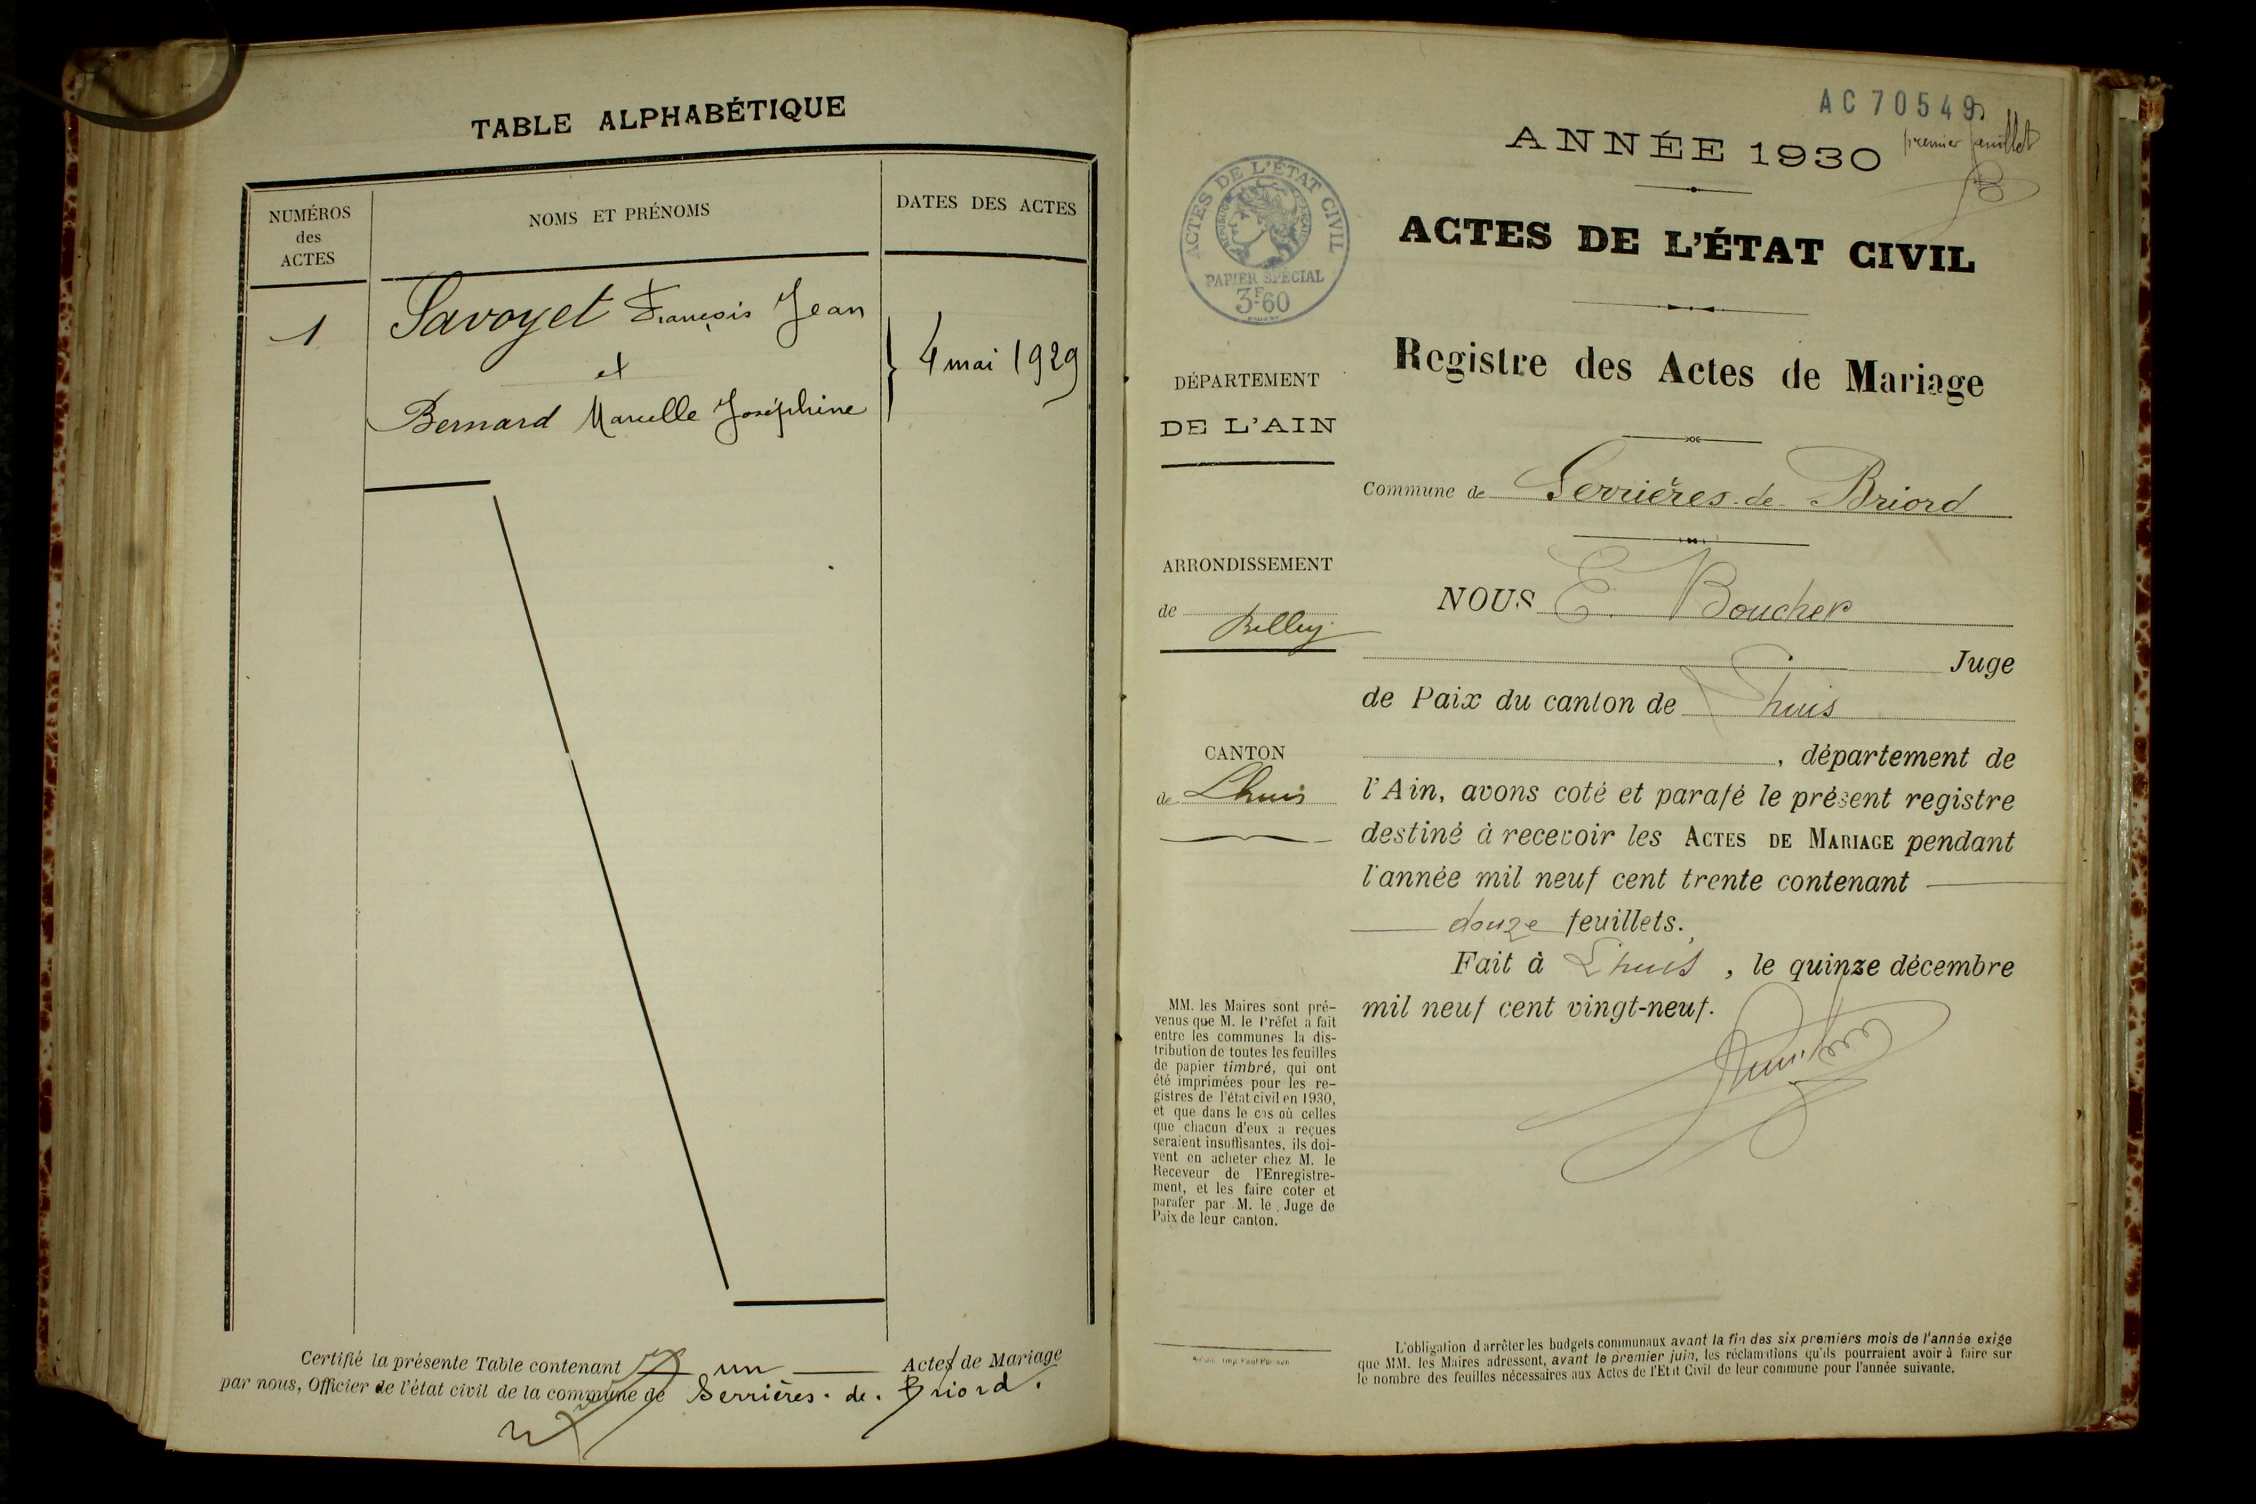 TABLE ALPHABÉTIQUE
NUMÉROS
des
ACTES
NOMS ET PRÉNOMS
DATES DES ACTES
1
Savoyet François Jean
et
Bernard Marcelle Joséphine
4 mai 1929
Certifié la présente Table contenant un Actes de Mariage
par nous, Officier de l'état civil de la commune de Serrières-de-Briord.
AC 70549
premier feuillet
ANNÉE 1930
ACTES DE L'ÉTAT CIVIL
PAPIER SPÉCIAL
3F60
ACTES DE L'ÉTAT CIVIL
Registre des Actes de Mariage
DÉPARTEMENT
DE L'AIN
Commune de Serrières-de-Briord
ARRONDISSEMENT
de Belley
CANTON
de Lhuis
NOUS E. Boucher
Juge
de Paix du canton de Lhuis
, département de
l'Ain, avons coté et parafé le présent registre
destiné à recevoir les ACTES DE MARIAGE pendant
l'année mil neuf cent trente contenant
douze feuillets.
Fait à Lhuis, le quinze décembre
mil neuf cent vingt-neuf.
MM. les Maires sont pré-
venus que M. le Préfet a fait
entre les communes la dis-
tribution de toutes les feuilles
de papier timbré, qui ont
été imprimées pour les re-
gistres de l'état civil en 1930,
et que dans le cas où celles
que chacun d'eux a reçues
seraient insuffisantes, ils doi-
vent en acheter chez M. le
Receveur de l'Enregistre-
ment, et les faire coter et
parafer par M. le Juge de
Paix de leur canton.
L'obligation d'arrêter les budgets communaux avant la fin des six premiers mois de l'année exige
que MM. les Maires adressent, avant le premier juin, les réclamations qu'ils pourraient avoir à faire sur
le nombre des feuilles nécessaires aux Actes de l'Etat Civil de leur commune pour l'année suivante.